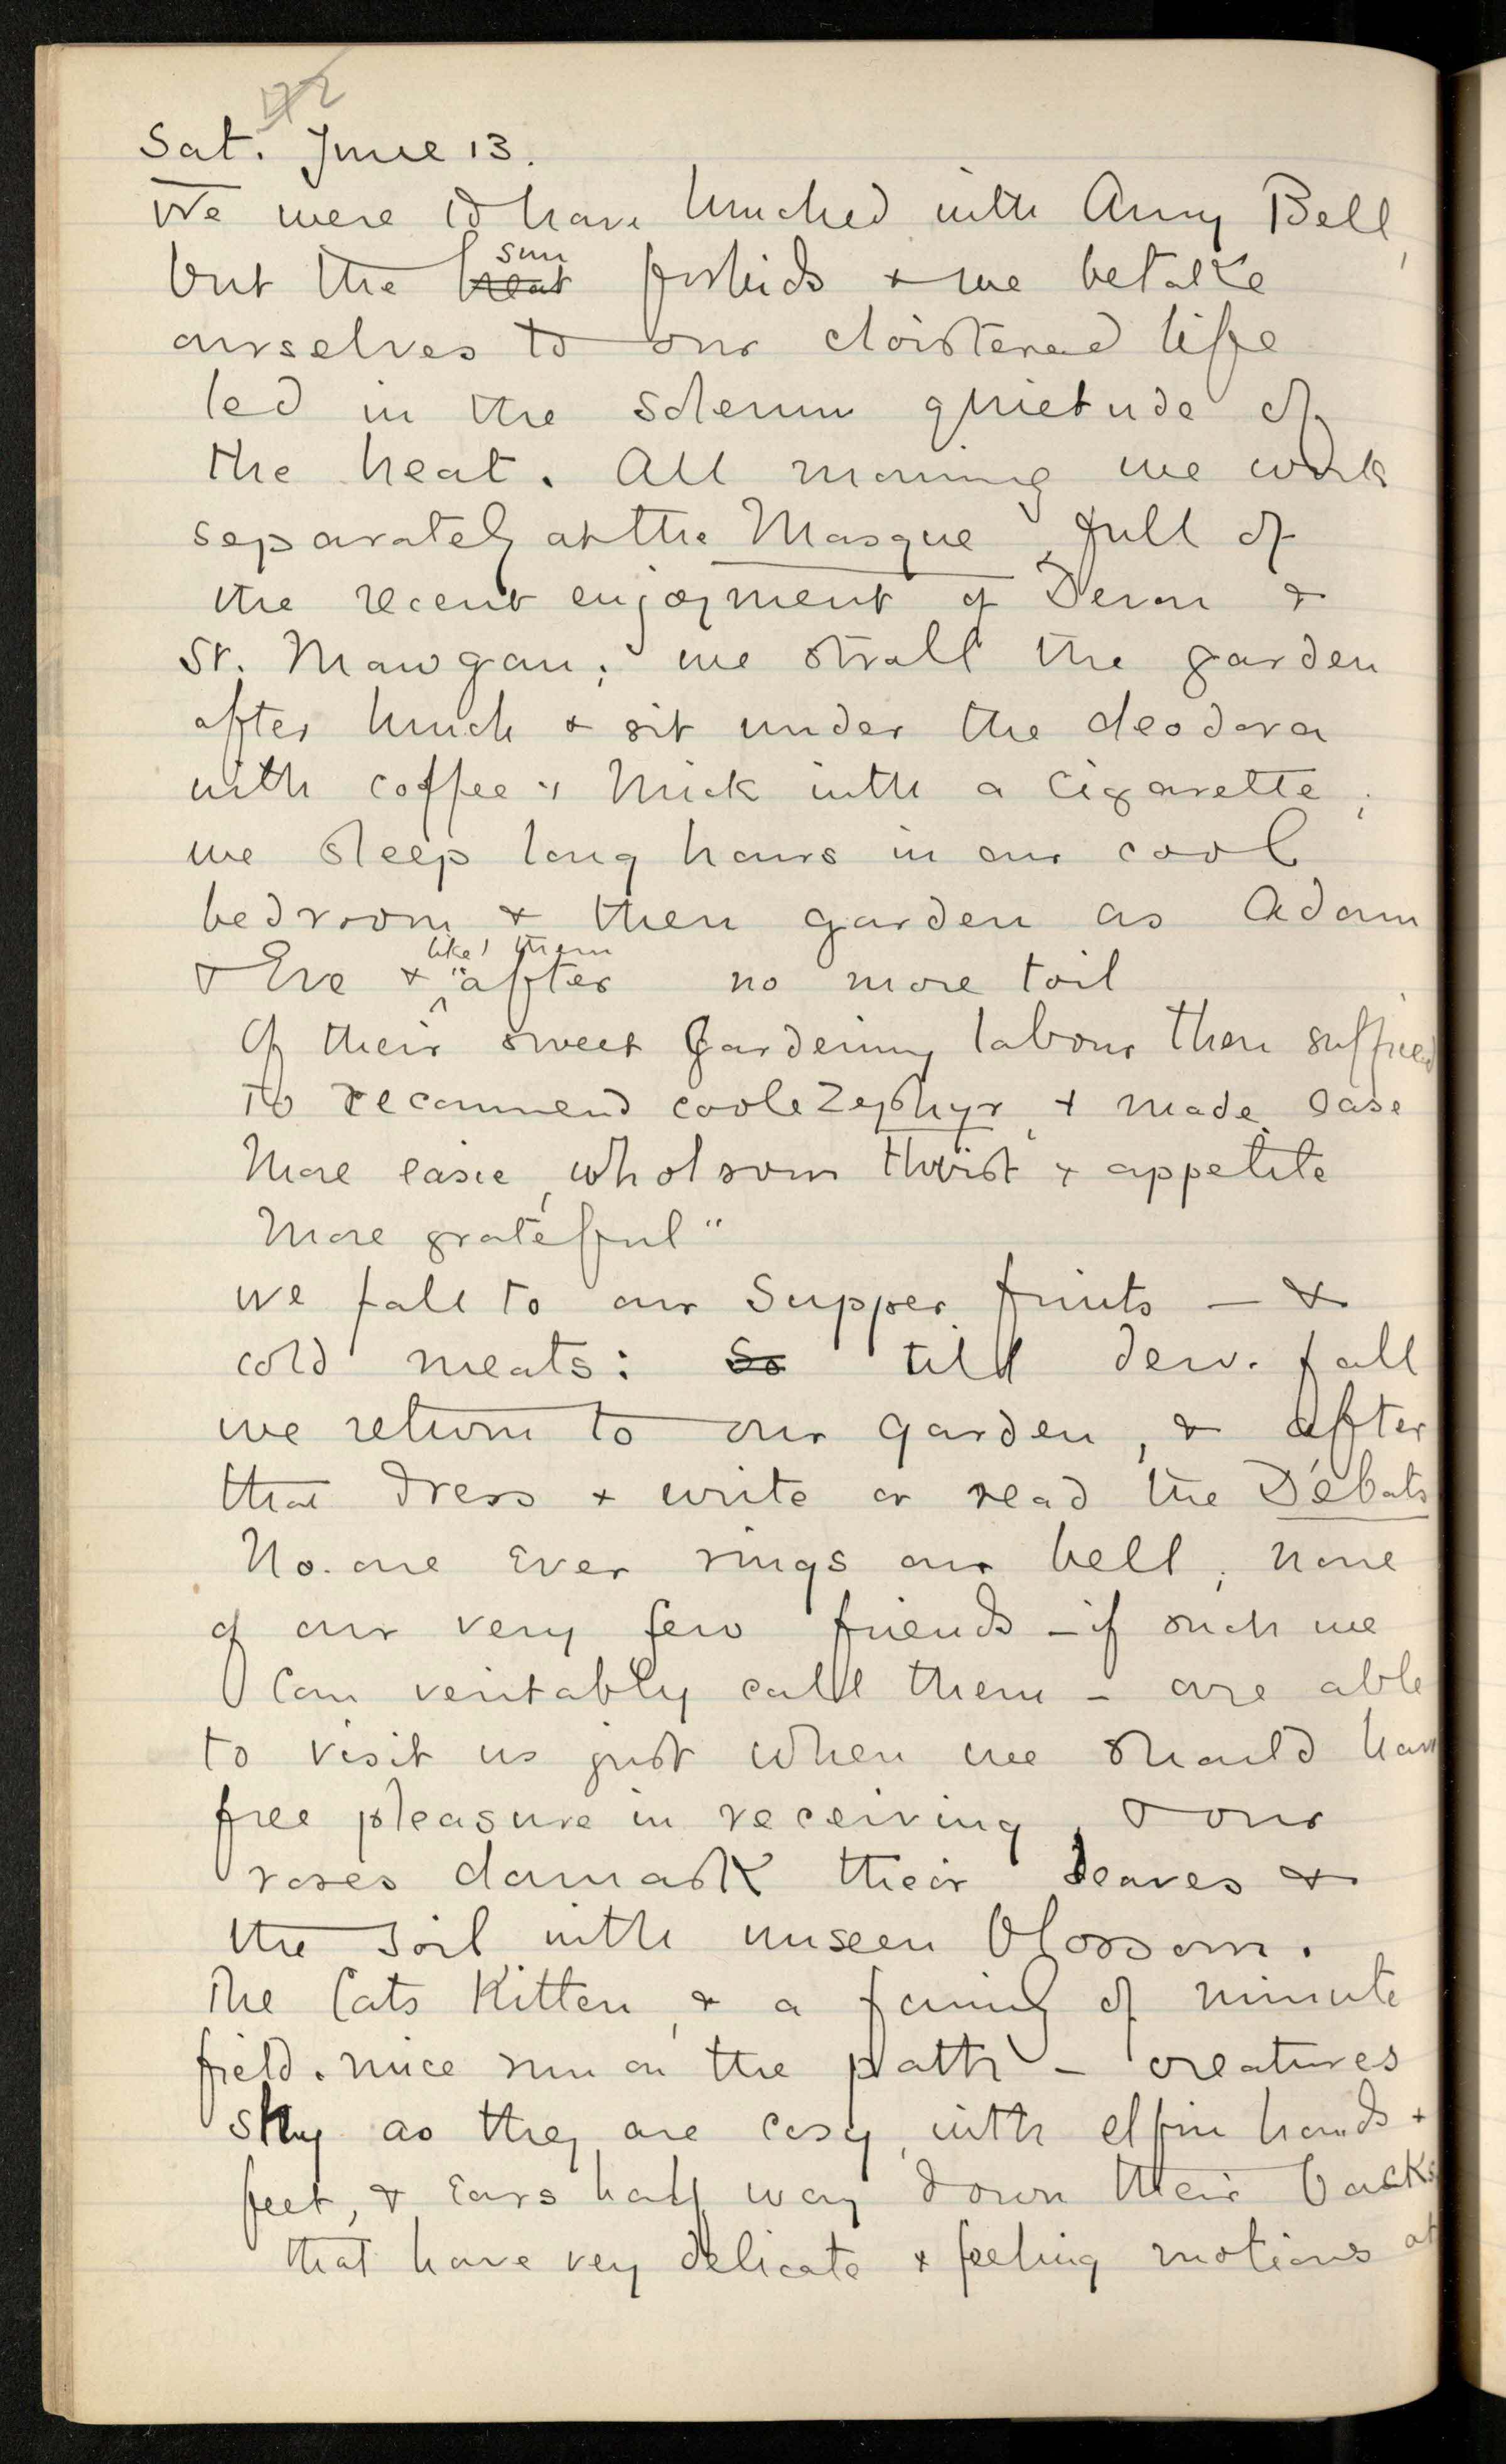 Sat. June 13.
We were to have lunched with Amy Bell,
but the heat sun forbids & we betake
ourselves to our cloistered life
led in the solemn quietude of
the heat. All morning we work
separately at the Masque, full of
the recent enjoyment of Devon &
St. Mawgan; we stroll the garden
after lunch & sit under the deodara
with coffee & Mick with a cigarette;
we sleep long hours in our cool
bedroom & then garden as Adam
& Eve & like them "after no more toil
Of their sweet Gardening labour then suffic'd
To recommend coole Zephyr, & made ease
More easie, wholsom thirst & appetite
More grateful"
we fall to our Supper fruits — &
cold meats: So till dew-fall
we return to our garden, & after
that dress & write or read the Débats
No-one ever rings our bell; none
of our very few friends – if such we
can veritably call them – are able
to visit us just when we should have
free pleasure in receiving, & our
roses damask their leaves &
the soil with unseen blossom.
The Cats Kitten, & a family of minute
field-mice run on the path – creatures
shy as they are cosy, with elfin hands &
feet, & ears half way down their backs
that have very delicate & feeling motions at